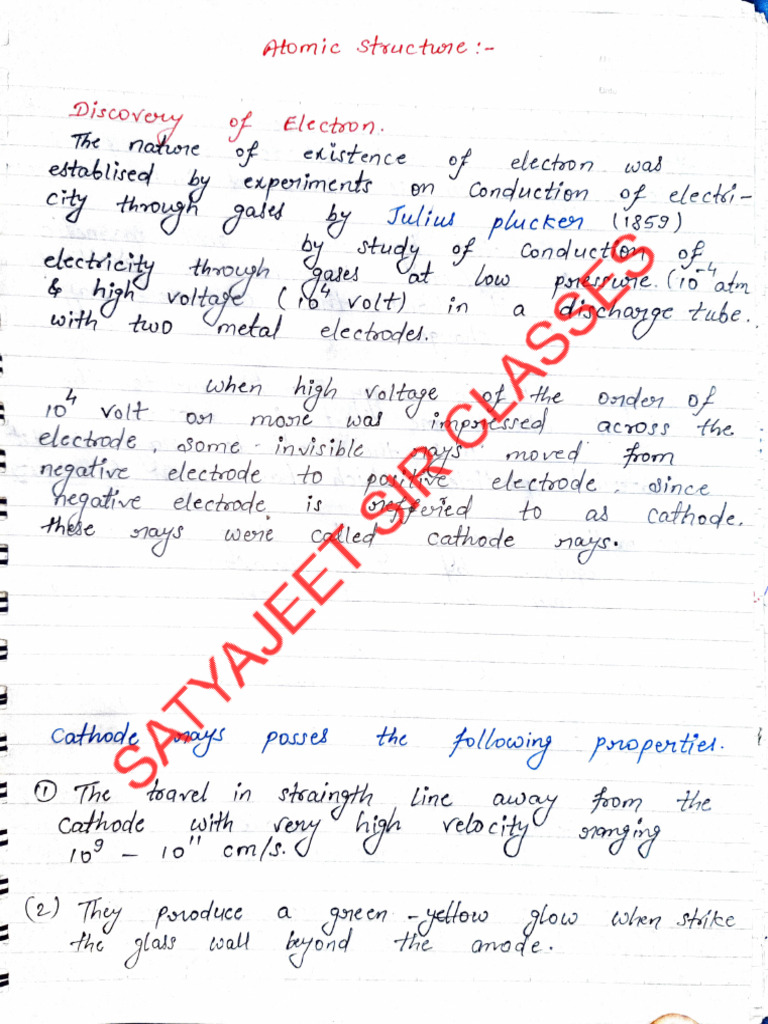 Atomic Structure :-
Discovery of Electron.
The nature of existence of electron was
establised by experiments on Conduction of electri-
city through gases by Julius plucker (1859)
by study of Conduction of
electricity through gases at low pressure. (10⁻⁴ atm
& high voltage (10⁴ volt) in a discharge tube.
with two metal electrodes.
when high voltage of the order of
10⁴ volt or more was impressed across the
electrode, some invisible rays moved from
negative electrode to positive electrode. since
negative electrode is reffered to as cathode.
these rays were called cathode rays.
SATYAJEET SIR CLASSES
Cathode rays posses the following properties.
① The travel in straingth line away from the
cathode with very high velocity ranging
10⁹ – 10¹¹ cm/s.
(2) They produce a green -yellow glow when strike
the glass wall beyond the anode.